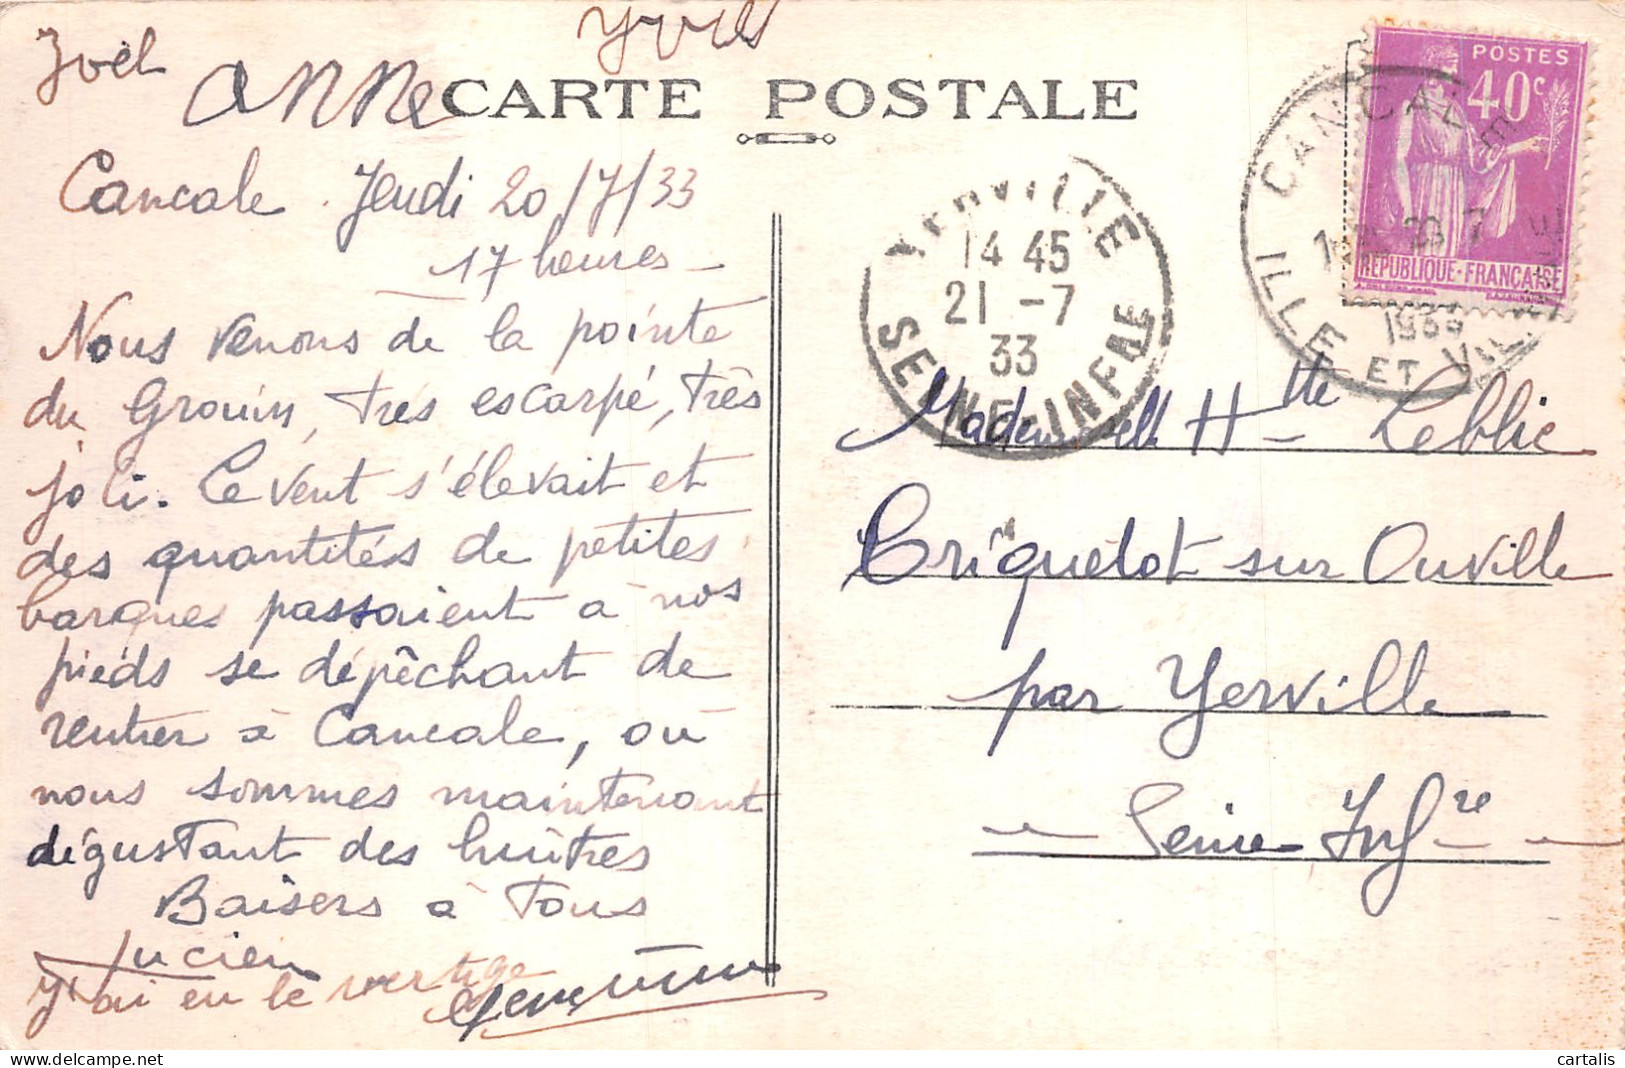 Yves
Joël
Anne
CARTE POSTALE
Cancale Jeudi 20/7/33
17 heures
Nous venons de la pointe
du Grouin, très escarpé, très
joli. Le vent s'élevait et
des quantités de petites
barques passaient à nos
pieds se dépêchant de
rentrer à Cancale, où
nous sommes maintenant
dégustant des huîtres
Baisers à Tous
Lucien
J'ai eu le vertige
YERVILLE
14 45
21 -7
33
SEINE-INFRE
CANCALE
20 7
1933
ILLE ET VILAINE
POSTES
40c
REPUBLIQUE-FRANCAISE
Mademoiselle Htte Leblic
Criquetot sur Ouville
par Yerville
Seine Infre
cartalis